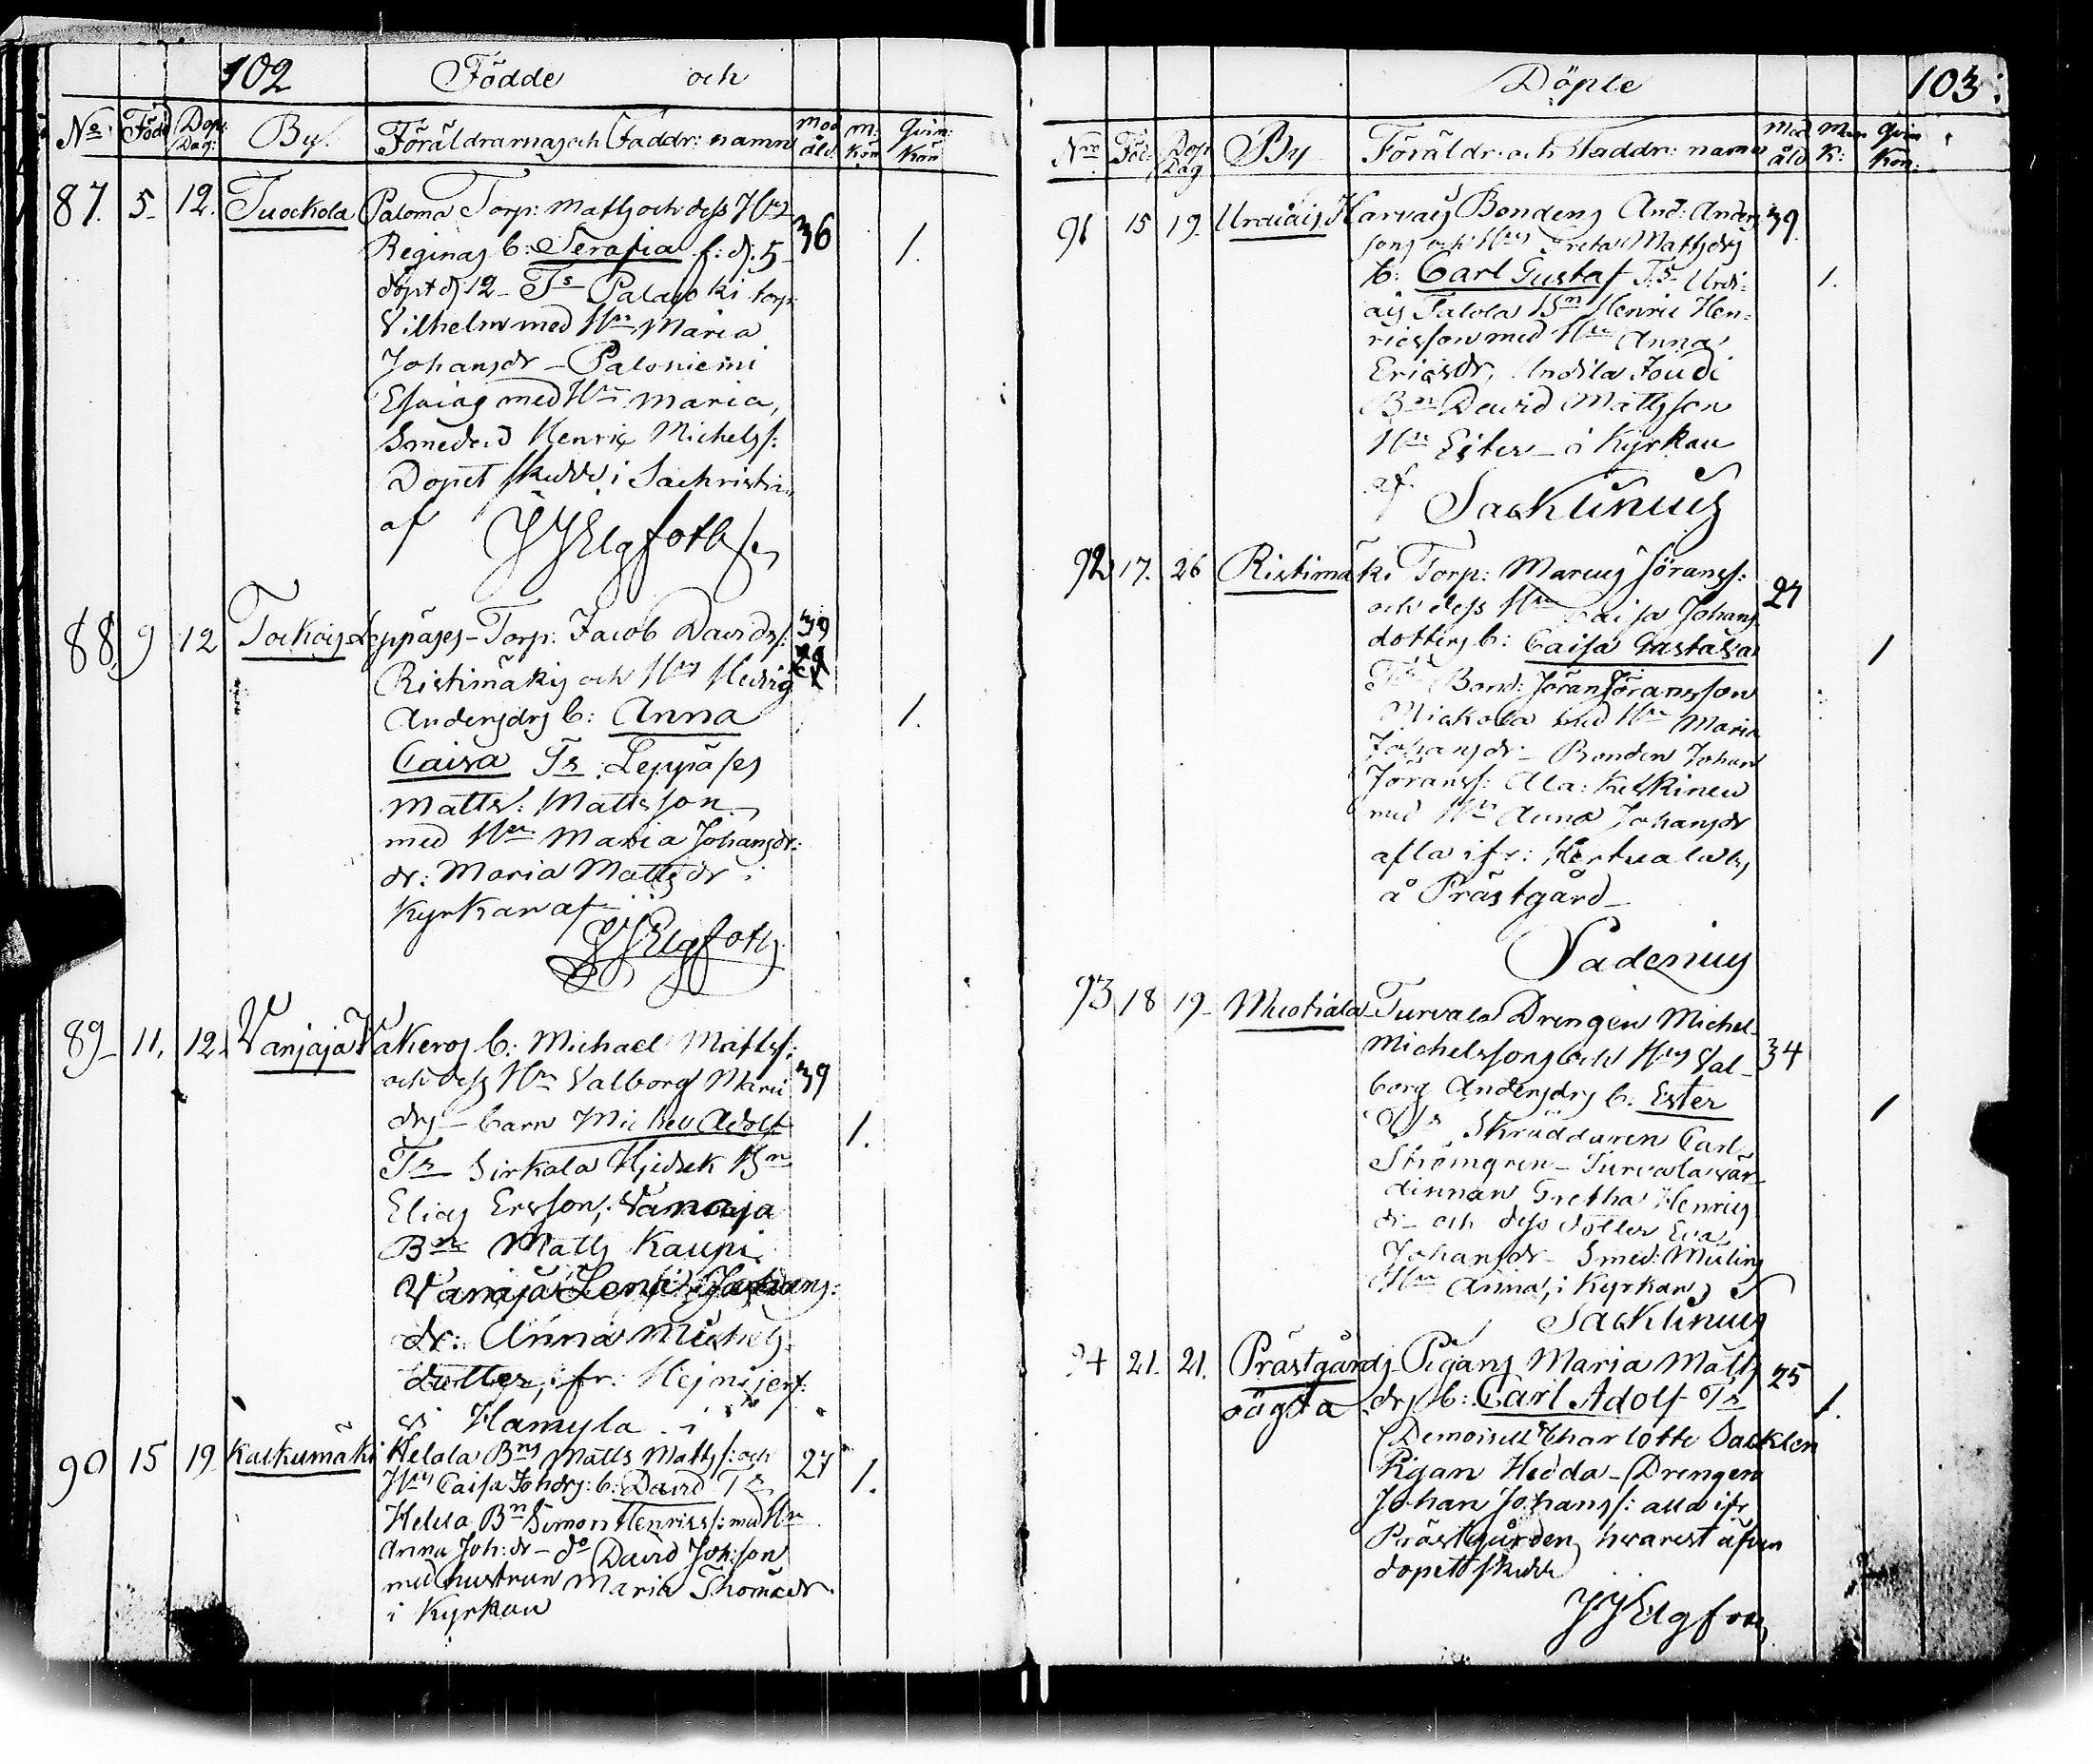 102 Födde och
No Född Dop: Dag: By. Föräldrarnas och Faddr: namn Mod åld: M: Kön Qvin: Kön
87. 5. 12. Tuockola Paloma Torp: Matts och dess Hus
Reginas b: Serafia f: d: 5 36 1.
döpt d: 12 - Ts Palajoki torp:
Vilhelm med Hu Maria
Johansdr - Paloniemi
Esaias med Hu Maria,
Smeden Henric Michelss:
Dopet skedde i Sachristian
af JJElgfoth
88. 9 12 Tockois Leppäses - Torp: Jacob Davidss: 39
Ristimäkis och Hus Hedvig
Andersdrs b: Anna 1.
Caisa Ts Leppäses
Matts: Mattsson
med Hu Maria Johansdr:
dr: Maria Mattsdr i
Kyrkan af
JJElgfoth
89 11. 12. Vanjaja Vakeros b: Michael Mattss:
och dess Hu Valborg Marii 39
drs - barn Michel Adolf 1.
Ts Sirkala Bn
Elias Ersson, Vanaja
Bn Matts Kaupi
Vanaja Lena Johans:
dr: Anna Michels
dotter, ifr:
Hamyla i
90 15 19 Kaukumäki Helola Bns Matts Mattss: och 27 1.
Hus Caisa Johdrs: b: David Ts
Helela Bn Simon Henricss: med Hu
Anna Joh:dr - do David Joh:son
med hustrun Maria Thomædr
i Kyrkan
Döpte 103.
Nro Föd: Dop Dag By Föräldr: och Faddr: namn Mod åld Man K: Qvin Kön:
91 15 19. Urdiais Harvais Bondens And: Anders 39
sons och Hus Greta Mattsdrs
b: Carl Gustaf Ts Urdi: 1.
ais Talola Bn Henric Hen:
ricsson med Hu Anna
Ericsdr, Andila Joudi
Bn David Mattsson
Hu Ester - i Kyrkan
af Sacklinius
92 17. 26 Ristimäki Torp: Marcus Göranss: 27
och dess Hu Caisa Johans
dotters b: Caisa Gustava 1
Ts Bond: Jöran Göransson
Mickola med Hu Maria
Johansdr - Bonden Johan
Jöranss: Ala: Keskinen
med Hu Anna Johansdr
alla ifr: Kertuala by
å Prästgård
Vadenius
93 18 19 Muotiala Turvala Drengen Michel
Michelssons och Hus Val- 34
borg Andersdrs b: Ester 1
Ts Skräddaren Carl
Strömgren - Turvala vär-
dinnan Gretha Henrics
dr - och dess dotter Eva
Johansdr - Smed: Mulins
Hu Anna, i Kyrkan,
Sacklinius
94 21. 21. Prästgårds Pigans Maria Matts 25
oägta drs b: Carl Adolf Ts 1.
Demoisell Charlotte Sacklen
Pigan Hedda - Drengen
Johan Johanss: alla ifr
Prästgården, hvarest äfven
dopett skedde
JJElgfoth